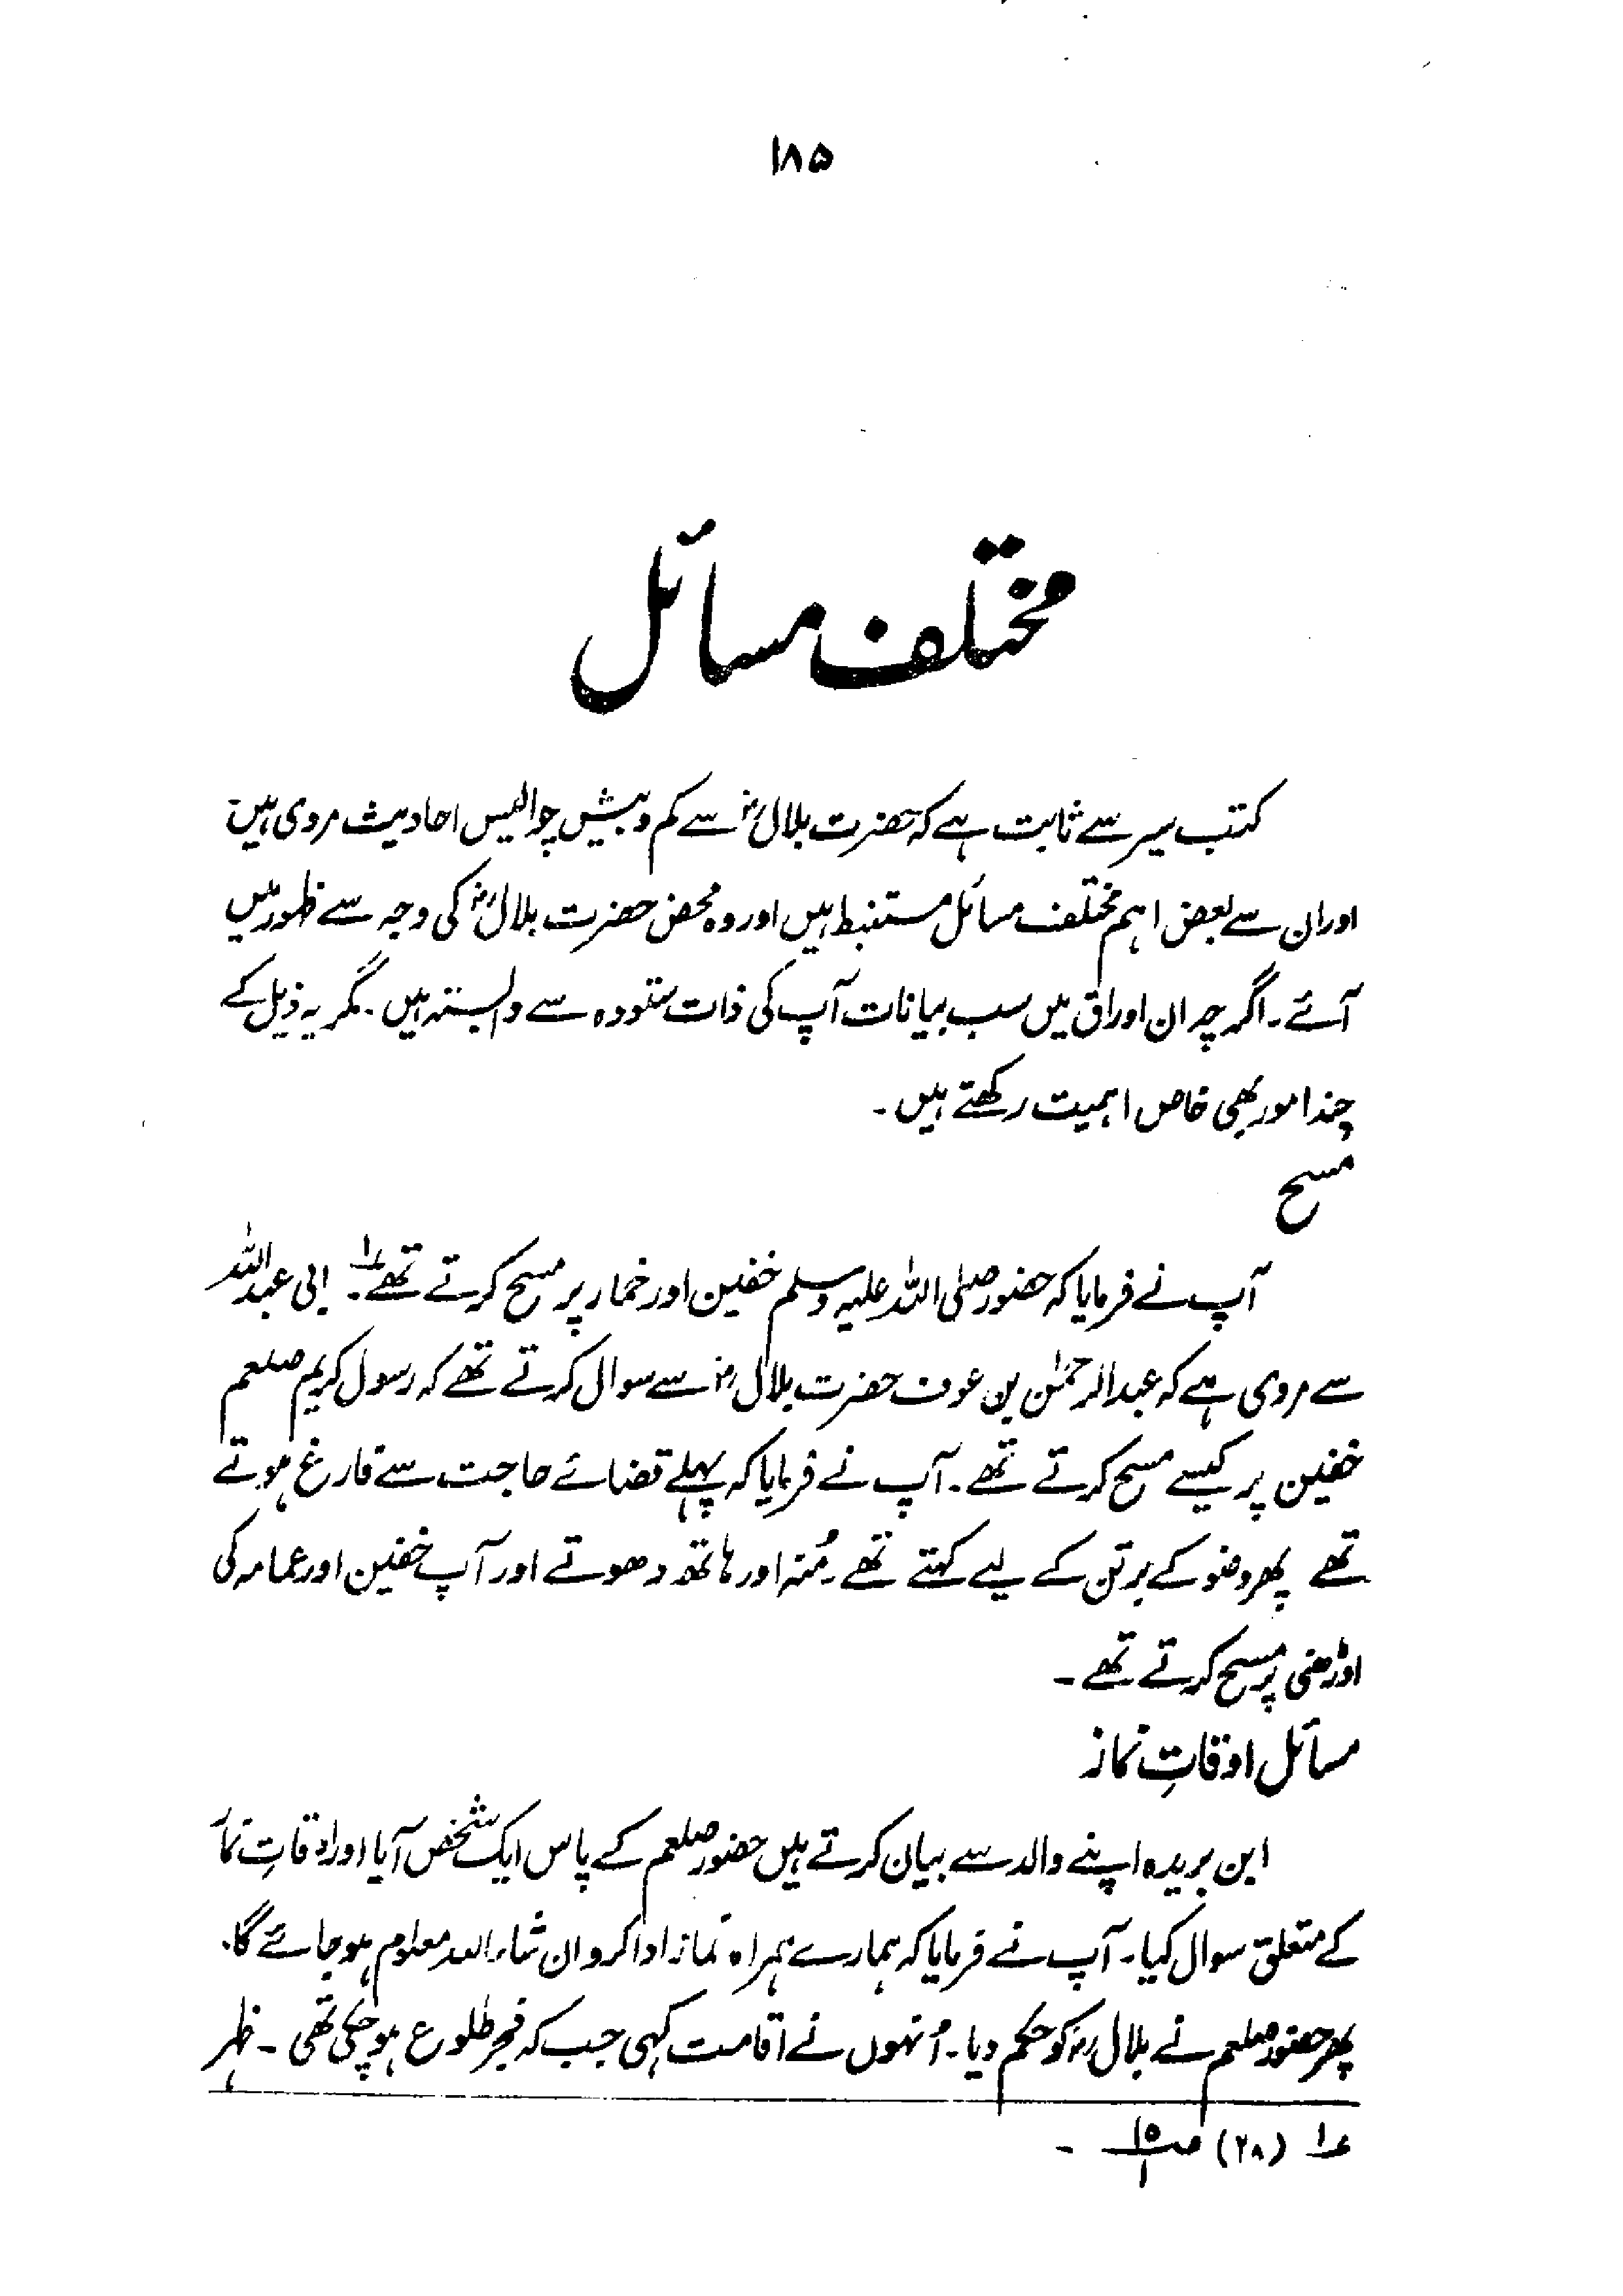 ۱۸۵
مختلف مسائل
کتب سیر سے ثابت ہے کہ حضرت بلالؓ سے کم و بیش چوالیس احادیث مروی ہیں
اور ان سے بعض اہم مختلف مسائل مستنبط ہیں اور وہ محض حضرت بلالؓ کی وجہ سے ظہور میں
آئے۔ اگرچہ ان اوراق میں سب بیانات آپ کی ذات ستودہ سے وابستہ ہیں۔ مگر یہ ذیل کے
چند امور بھی خاص اہمیت رکھتے ہیں۔
مسح
آپ نے فرمایا کہ حضور صلی اللہ علیہ وسلم خفین اور خمار پر مسح کرتے تھے۔ ؎۱ ابی عبداللہ
سے مروی ہے کہ عبدالرحمٰن بن عوف حضرت بلالؓ سے سوال کرتے تھے کہ رسول کریم صلعم
خفین پر کیسے مسح کرتے تھے۔ آپ نے فرمایا کہ پہلے قضائے حاجت سے فارغ ہوتے
تھے پھر وضو کے برتن کے لیے کہتے تھے۔ مُنہ اور ہاتھ دھوتے اور آپ خفین اور عمامہ کی
اوڑھنی پر مسح کرتے تھے۔
مسائل اوقاتِ نماز
ابن بریدہ اپنے والد سے بیان کرتے ہیں حضور صلعم کے پاس ایک شخص آیا اور اوقاتِ نماز
کے متعلق سوال کیا۔ آپ نے فرمایا کہ ہمارے ہمراہ نماز ادا کرو ان شاء اللہ معلوم ہو جائے گا۔
پھر حضور صلعم نے بلالؓ کو حکم دیا۔ اُنہوں نے اقامت کہی جب کہ فجر طلوع ہو چکی تھی۔ ظہر
؎۱ (۲۸) صـ ۱۵/۱ ۔